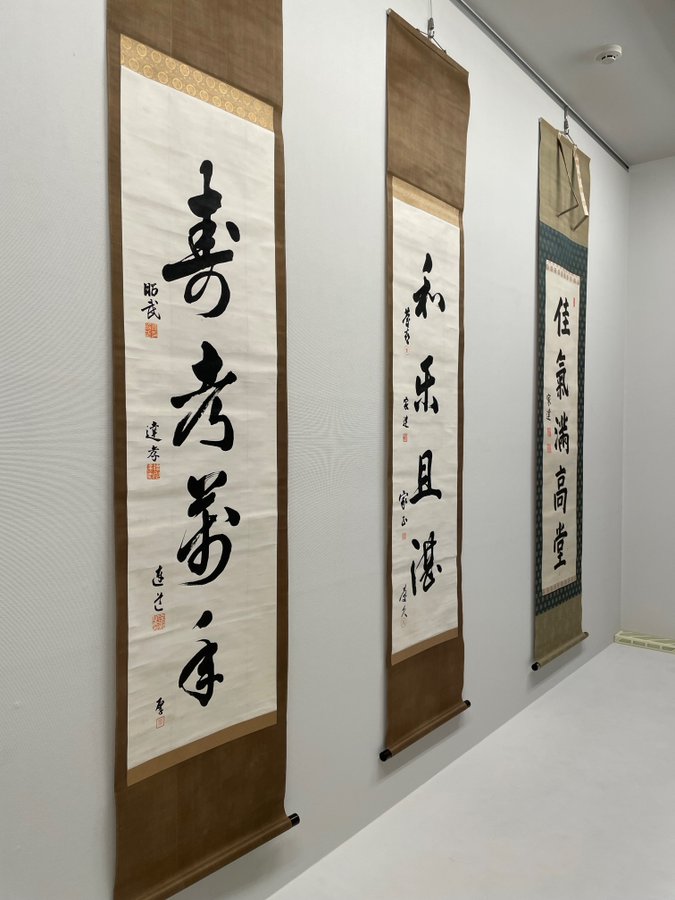 寿考萬年
昭武
達孝
達道
厚
和乐且湛
慶喜
家達
家正
慶久
佳氣滿高堂
家達